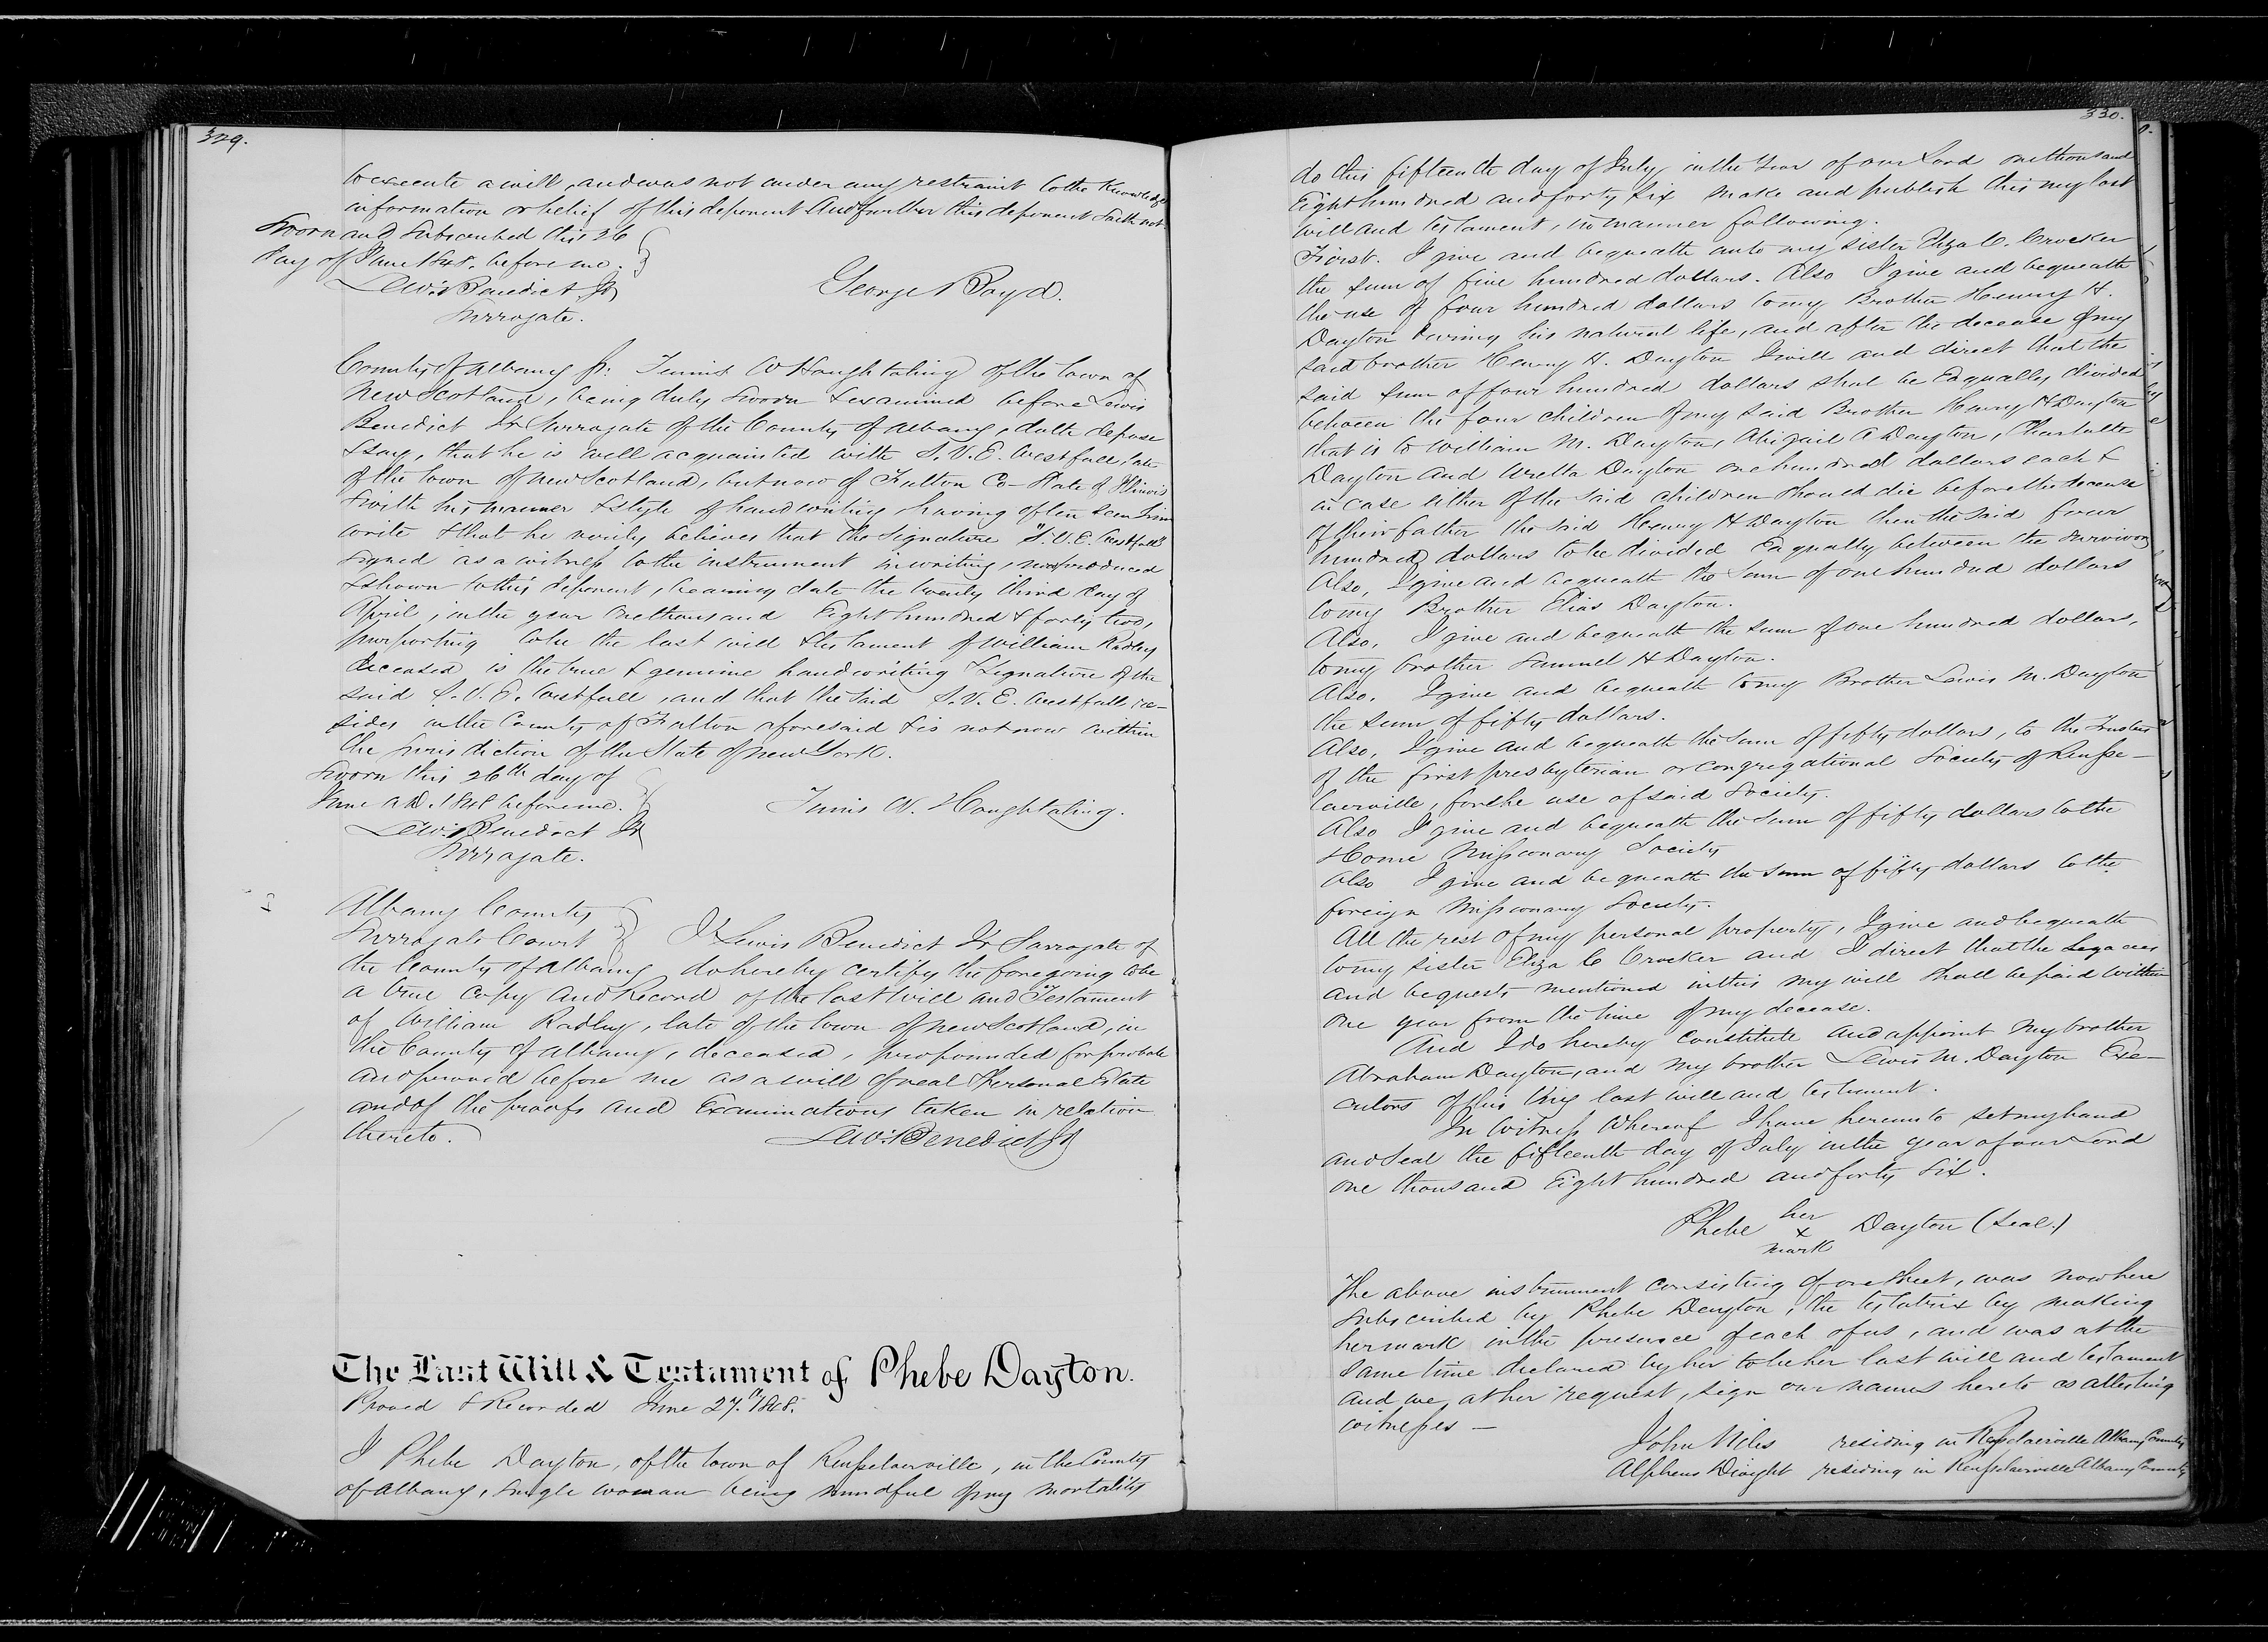 329.
to execute a will, and was not under any restraint to the Knowledge
information or belief of this deponent And further this deponent saith not
Sworn and Subscribed this 26
day of June 1848. before me.
Lewis Benedict Jr
Surrogate.
George Boyd.
County of Albany ss: Tunis W Houghtaling of the town of
New Scotland, being duly sworn & examined before Lewis
Benedict Jr Surrogate of the County of Albany, doth depose
& say, that he is well acquainted with S. V. E. Westfall, late
of the town of New Scotland, but now of Fulton Co- State of Illinois
& with his manner & style of handwriting having often seen him
write & that he verily believes that the signature "S. V. E. Westfall"
signed as a witness to the instrument in writing, now produced
& shown to this deponent, bearing date the twenty third day of
April, in the year one thousand Eight hundred & forty two,
purporting to be the last will & testament of William Radley
deceased is the true & genuine handwriting & signature of the
said S. V. E. Westfall, and that the said S. V. E. Westfall re-
sides in the County of Fulton aforesaid & is not now within
the jurisdiction of the State of New York.
Sworn this 26th day of
June A.D. 1848 before me.
Lewis Benedict Jr
Surrogate.
Tunis W. Houghtaling.
Albany County
Surrogate Court
I Lewis Benedict Jr Surrogate of
the County of Albany do hereby certify the foregoing to be
a true copy and Record of the last will and Testament
of William Radley, late of the town of New Scotland, in
the County of Albany, deceased, propounded for probate
and proved before me as a will of real & personal Estate
and of the proofs and Examinations taken in relation
thereto.
Lewis Benedict Jr
The Last Will & Testament of Phebe Dayton.
Proved & Recorded June 27th 1848.
I Phebe Dayton, of the town of Rensselaerville, in the County
of Albany, single woman being mindful of my mortality
330.
do this fifteenth day of July in the Year of our Lord one thousand
Eight hundred and forty six make and publish this my last
will and testament, in manner following.
First. I give and bequeath unto my sister Eliza C. Crocker
the sum of five hundred dollars. Also I give and bequeath
the use of four hundred dollars to my Brother Henry H.
Dayton during his natural life, and after the decease of my
said brother Henry H. Dayton I will and direct that the
said sum of four hundred dollars shal be Equally divided
between the four children of my said Brother Henry H Dayton
that is to William M. Dayton, Abigail A Dayton, Charlotte
Dayton and Urella Dayton one hundred dollars each &
in case either of the said children should die before the decease
of their father the said Henry H Dayton then the said four
hundred dollars to be divided Equally between the survivors
Also, I give and bequeath the sum of one hundred dollars
to my Brother Elias Dayton.
Also, I give and bequeath the sum of one hundred dollars,
to my brother Samuel H Dayton.
Also, I give and bequeath to my Brother Lewis M. Dayton
the sum of fifty dollars.
Also, I give and bequeath the sum of fifty dollars, to the Trustees
of the first presbyterian or Congregational Society of Rensse-
laerville, for the use of said Society.
Also I give and bequeath the sum of fifty dollars to the
Home Missionary Society
Also I give and bequeath the sum of fifty dollars to the
foreign Missionary Society.
All the rest of my personal property, I give and bequeath
to my sister Eliza C Crocker and I direct that the Legacies
and bequests mentioned in this my will shall be paid within
one year from the time of my decease.
And I do hereby constitute and appoint my brother
Abraham Dayton, and my brother Lewis M. Dayton Exe-
cutors of this my last will and testament.
In Witness Whereof I have hereunto set my hand
and seal the fifteenth day of July in the year of our Lord
one thousand Eight hundred and forty six.
her
Phebe x Dayton (seal.)
mark
The above instrument consisting of one sheet, was now here
subscribed by Phebe Dayton, the testatrix by making
her mark in the presence of each of us, and was at the
same time declared by her to be her last will and testament
and we, at her request, sign our names hereto as attesting
witnesses -
John Niles residing in Rensselaerville Albany County
Alpheus Dwight residing in Rensselaerville Albany County